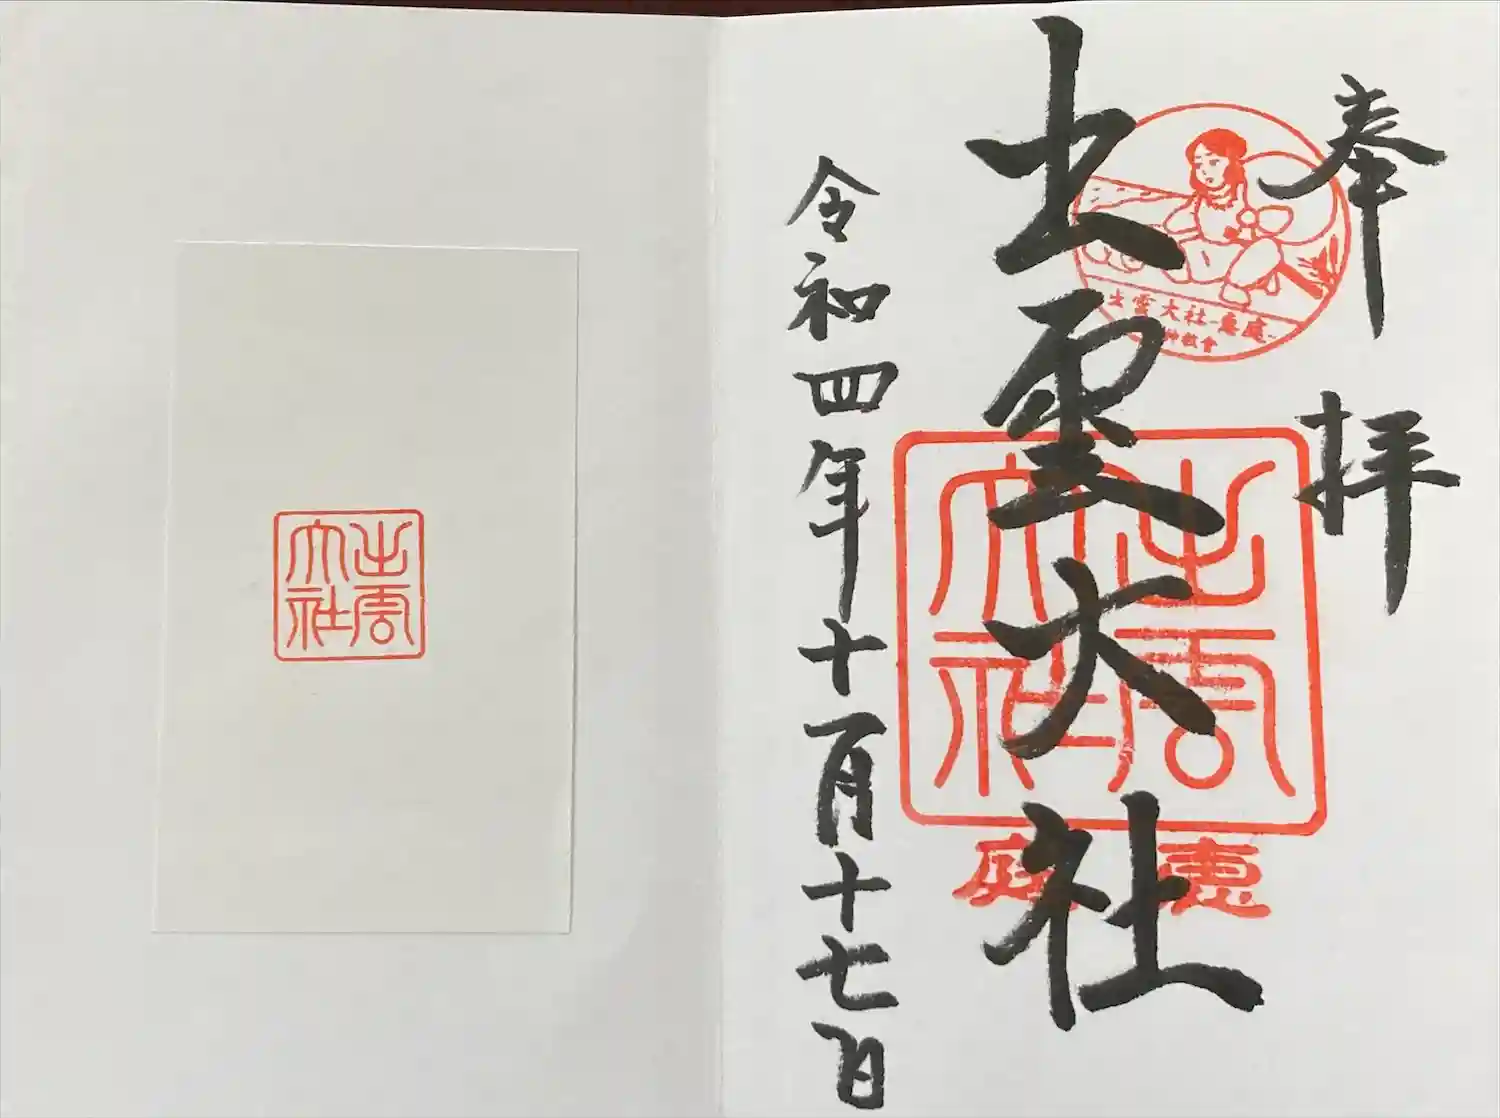 奉拝
出雲大社
令和四年十一月十七日
出雲大社-恵庭-
教會
出雲
大社
恵庭
出雲
大社